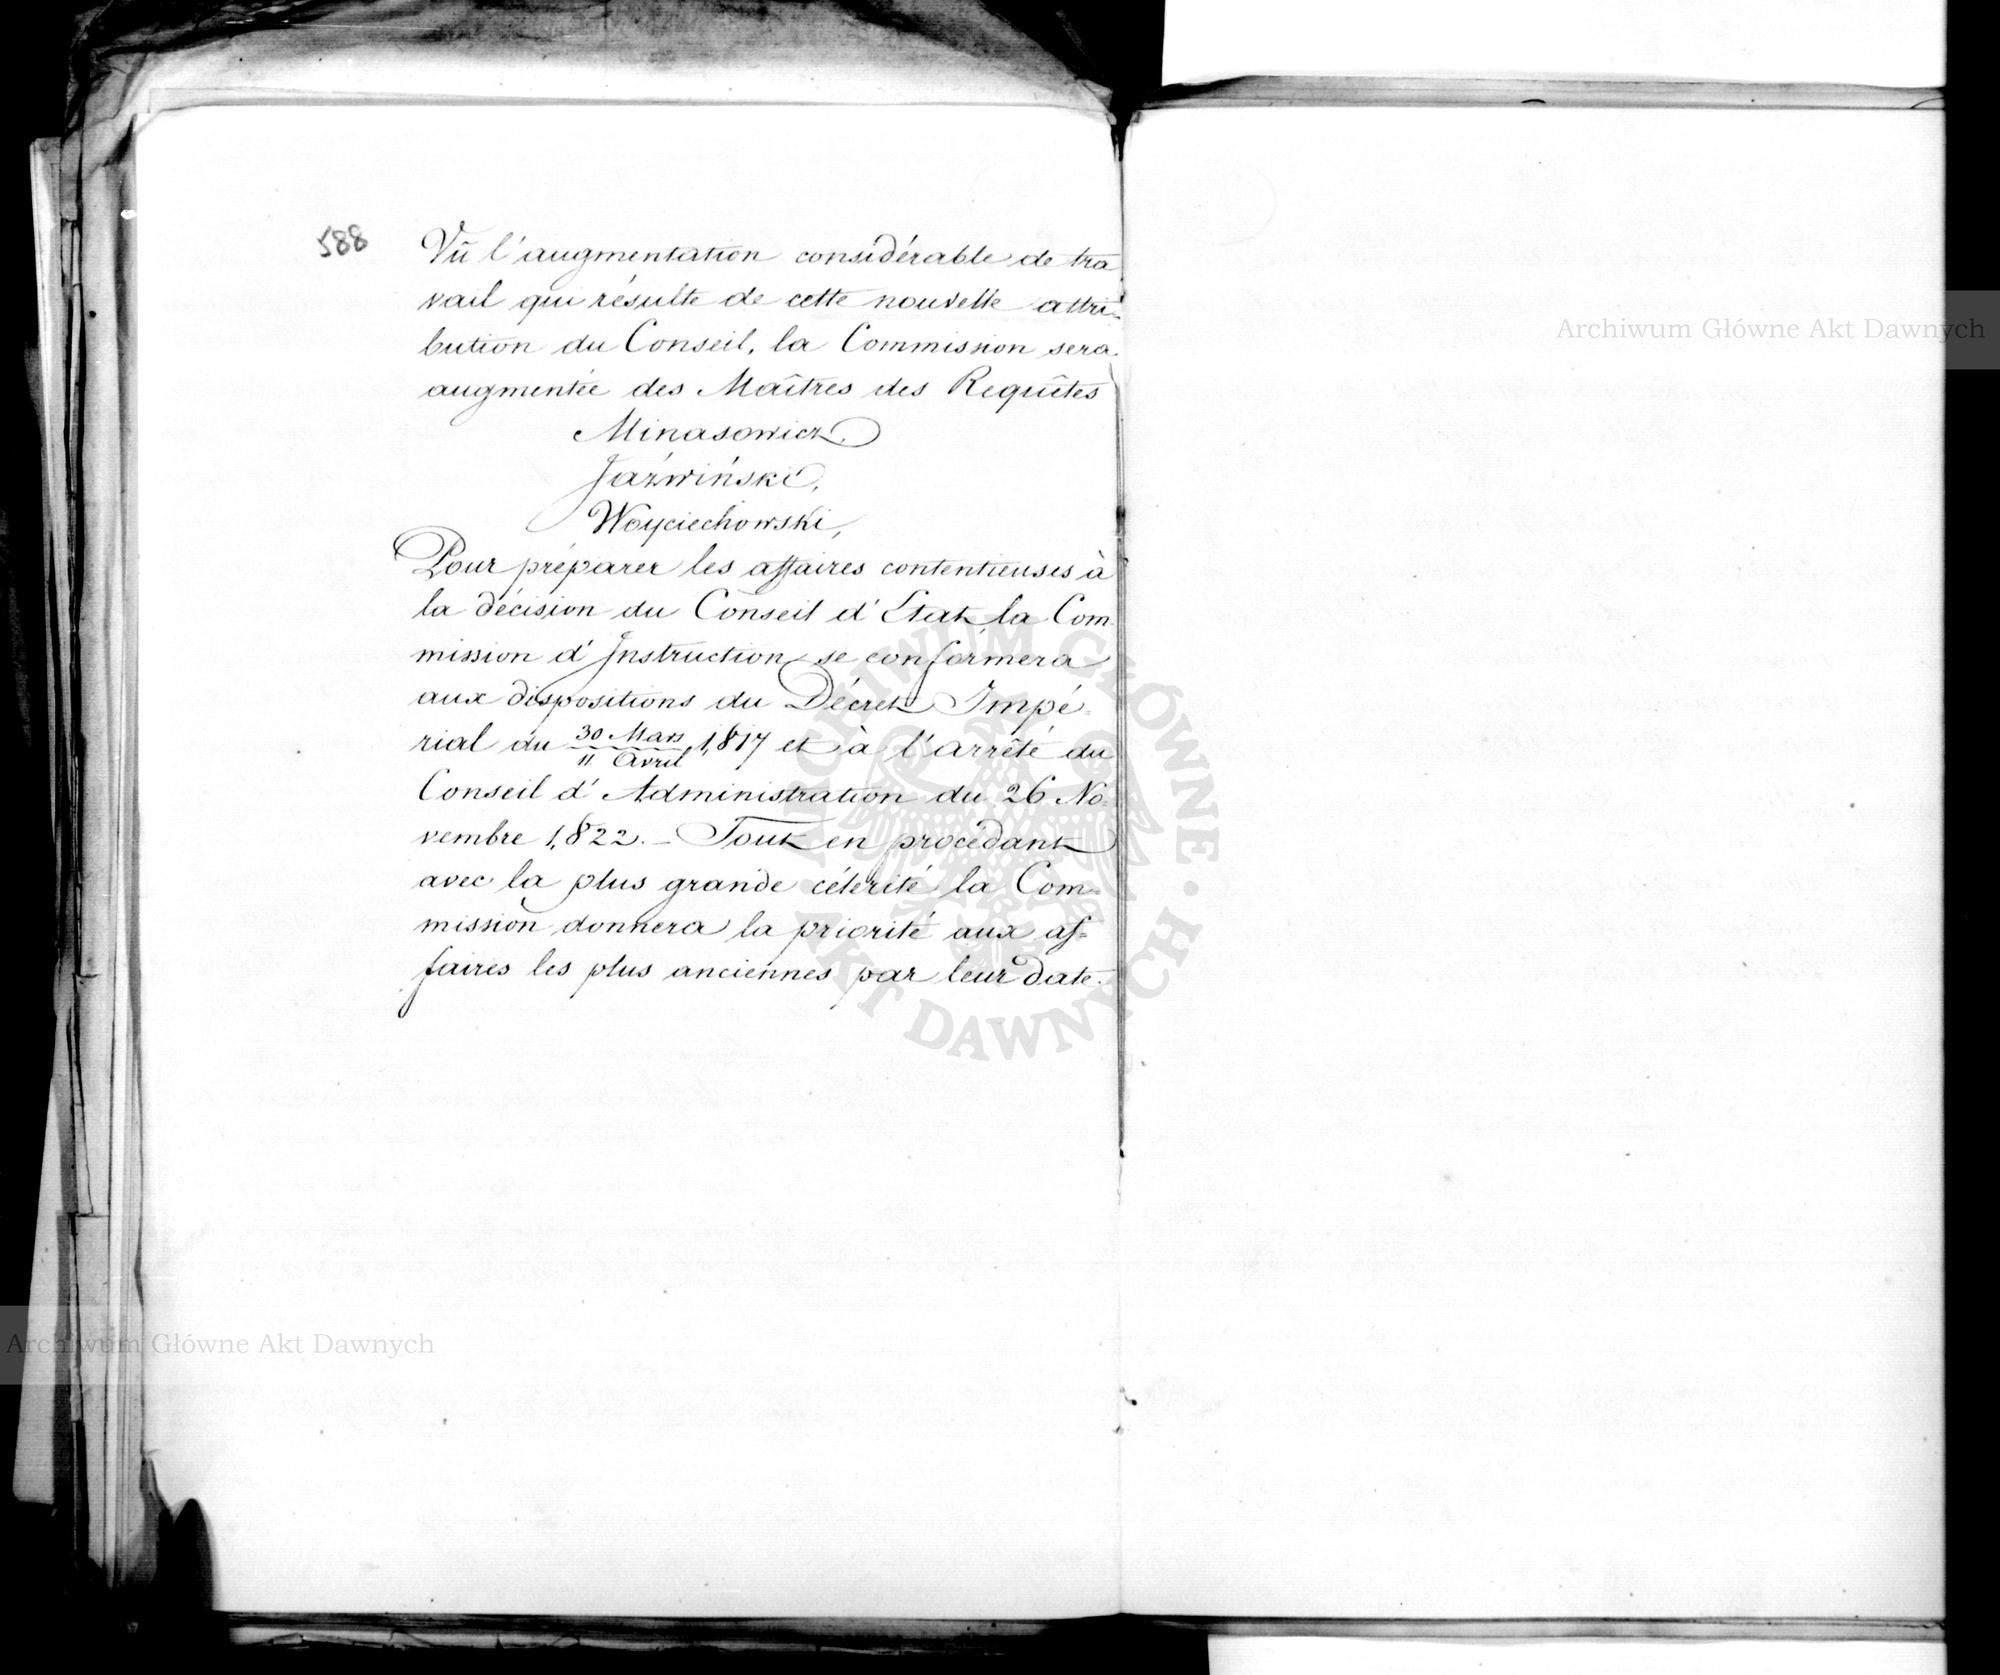 588
Vû l'augmentation considérable de tra
vail qui résulte de cette nouvelle attri-
bution du Conseil, la Commission sera
augmentée des Maîtres des Requêtes
Minasowicz,
Jaźwiński,
Woyciechowski,
Pour préparer les affaires contentieuses à
la décision du Conseil d'Etat la Com
mission d'Instruction se conformera
aux dispositions du Décret Impé-
rial du 30 Mars / 11 Avril 1817 et à l'arrêté du
Conseil d'Administration du 26 No-
vembre 1822. – Tout en procédant
avec la plus grande célerité la Com-
mission donnera la priorité aux af-
faires les plus anciennes par leur date.
Archiwum Główne Akt Dawnych
Archiwum Główne Akt Dawnych
ARCHIWUM GŁÓWNE · AKT DAWNYCH ·